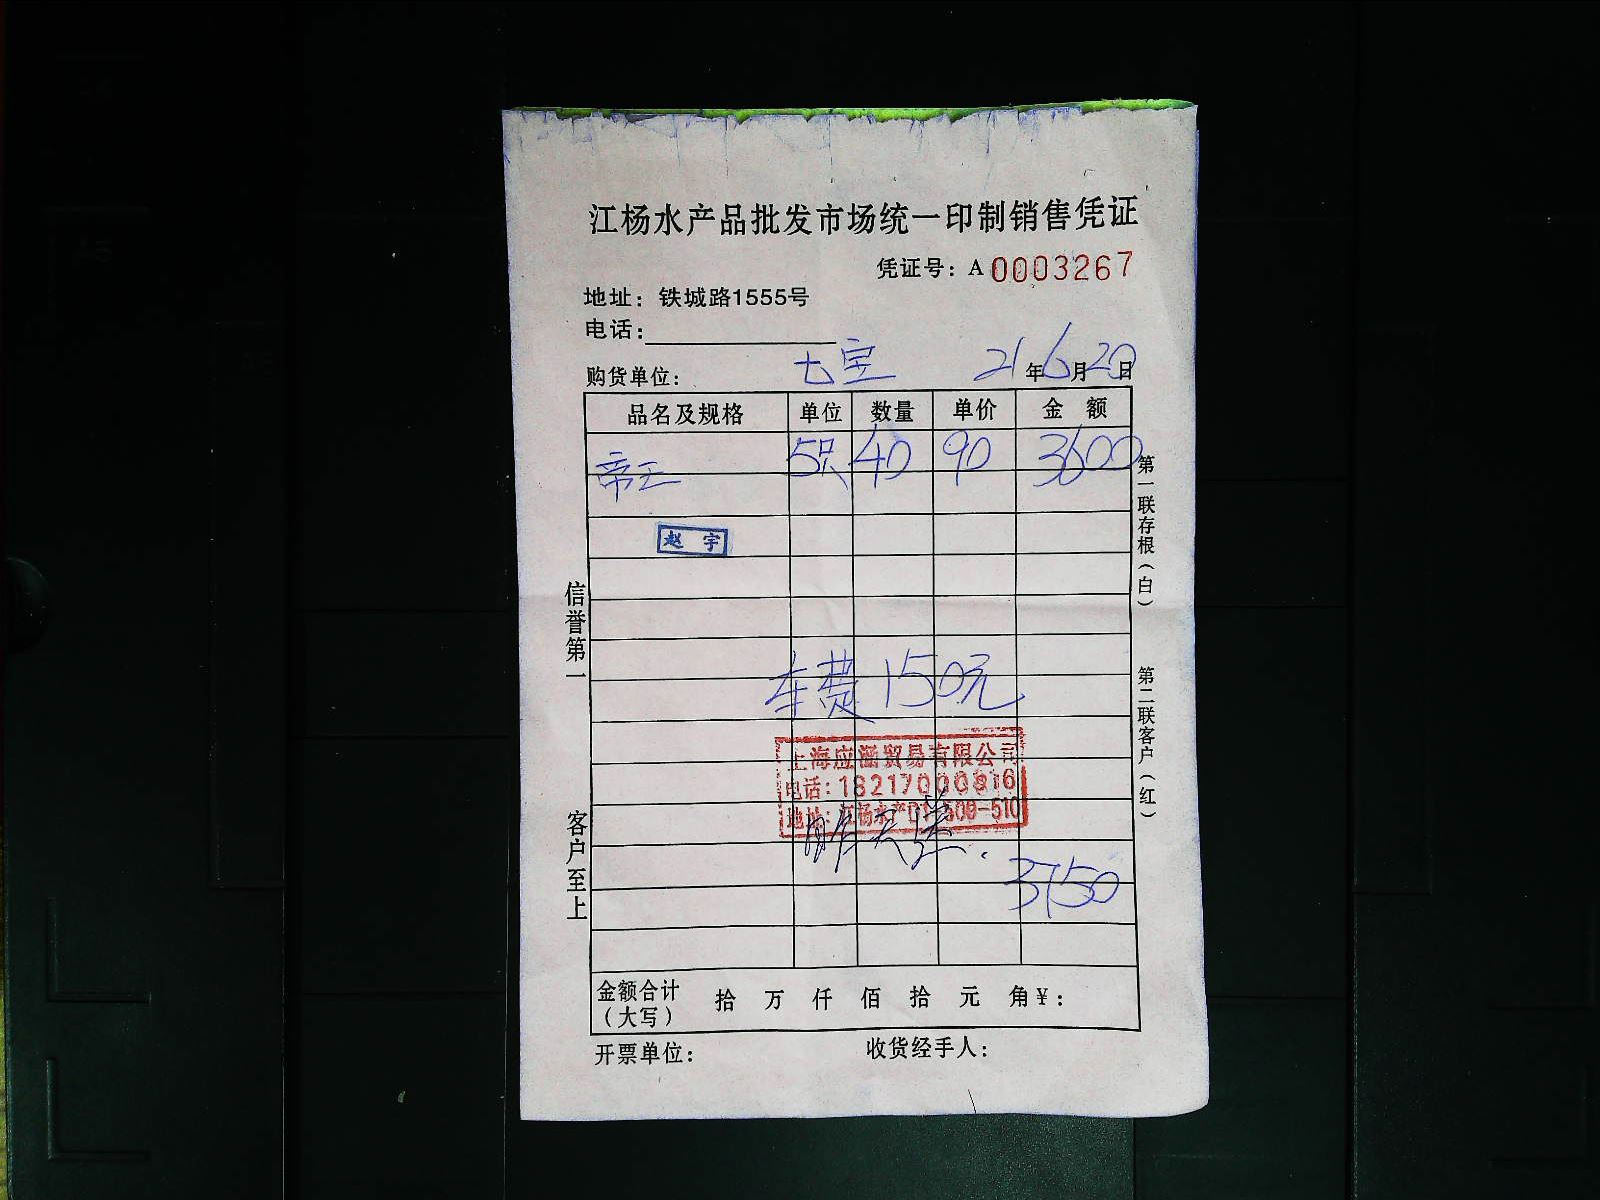 江杨水产品批发市场统一印制销售凭证
凭证号：A 0003267
地址：铁城路1555号
电话：
购货单位： 七宝 21年6月20日
品名及规格 单位 数量 单价 金额
帝王 5只 40 90 3600
赵宇
车费150元
上海应滋贸易有限公司
电话：18217000816
地址：江杨水产D1-508-510
昨天送.
3750
金额合计（大写） 拾 万 仟 佰 拾 元 角 ¥：
开票单位： 收货经手人：
信誉第一
客户至上
第一联存根（白）
第二联客户（红）